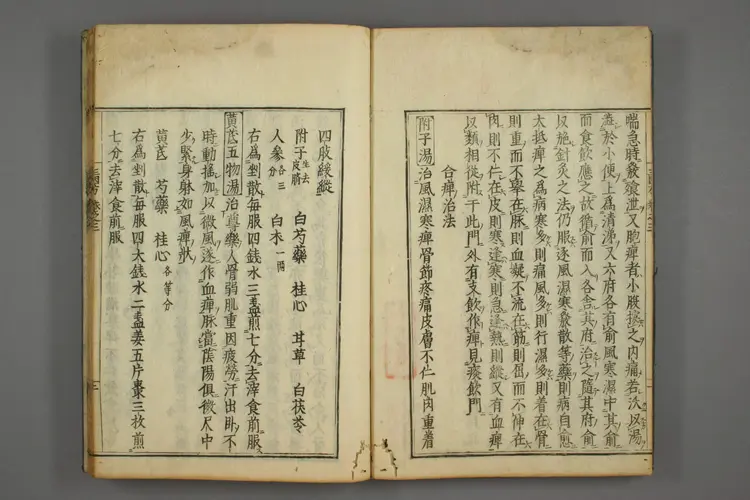 喘急時發飧泄又胞痺者小腹按之内痛若沃以湯
澁於小便上爲清涕又六府各有俞風寒濕中其俞
而食飲應之故循俞而入各舍其府治之隨其府俞
以施針灸之法仍服逐風濕寒發散等藥則病自愈
大抵痺之爲病寒多則痛風多則行濕多則着在骨
則重而不舉在脉則血凝不流在筋則屈而不伸在
肉則不仁在皮則寒逢寒則急逢熱則縱又有血痺
以類相從附于此門外有支飲作痺見痰飲門
合痺治法
附子湯治風濕寒痺骨節疼痛皮膚不仁肌肉重着
四肢緩縱
附子生去皮臍 白芍藥 桂心 甘草 白茯苓
人參各三 白朮一兩
右爲剉散每服四錢水三盞煎七分去滓食前服
黄芪五物湯治尊榮人骨弱肌重因疲勞汗出卧不
時動搖加以微風遂作血痺脉當陰陽俱微尺中
少緊身躰如風痺狀
黄芪 芍藥 桂心各等分
右爲剉散每服四大錢水二盞姜五片棗三枚煎
七分去滓食前服